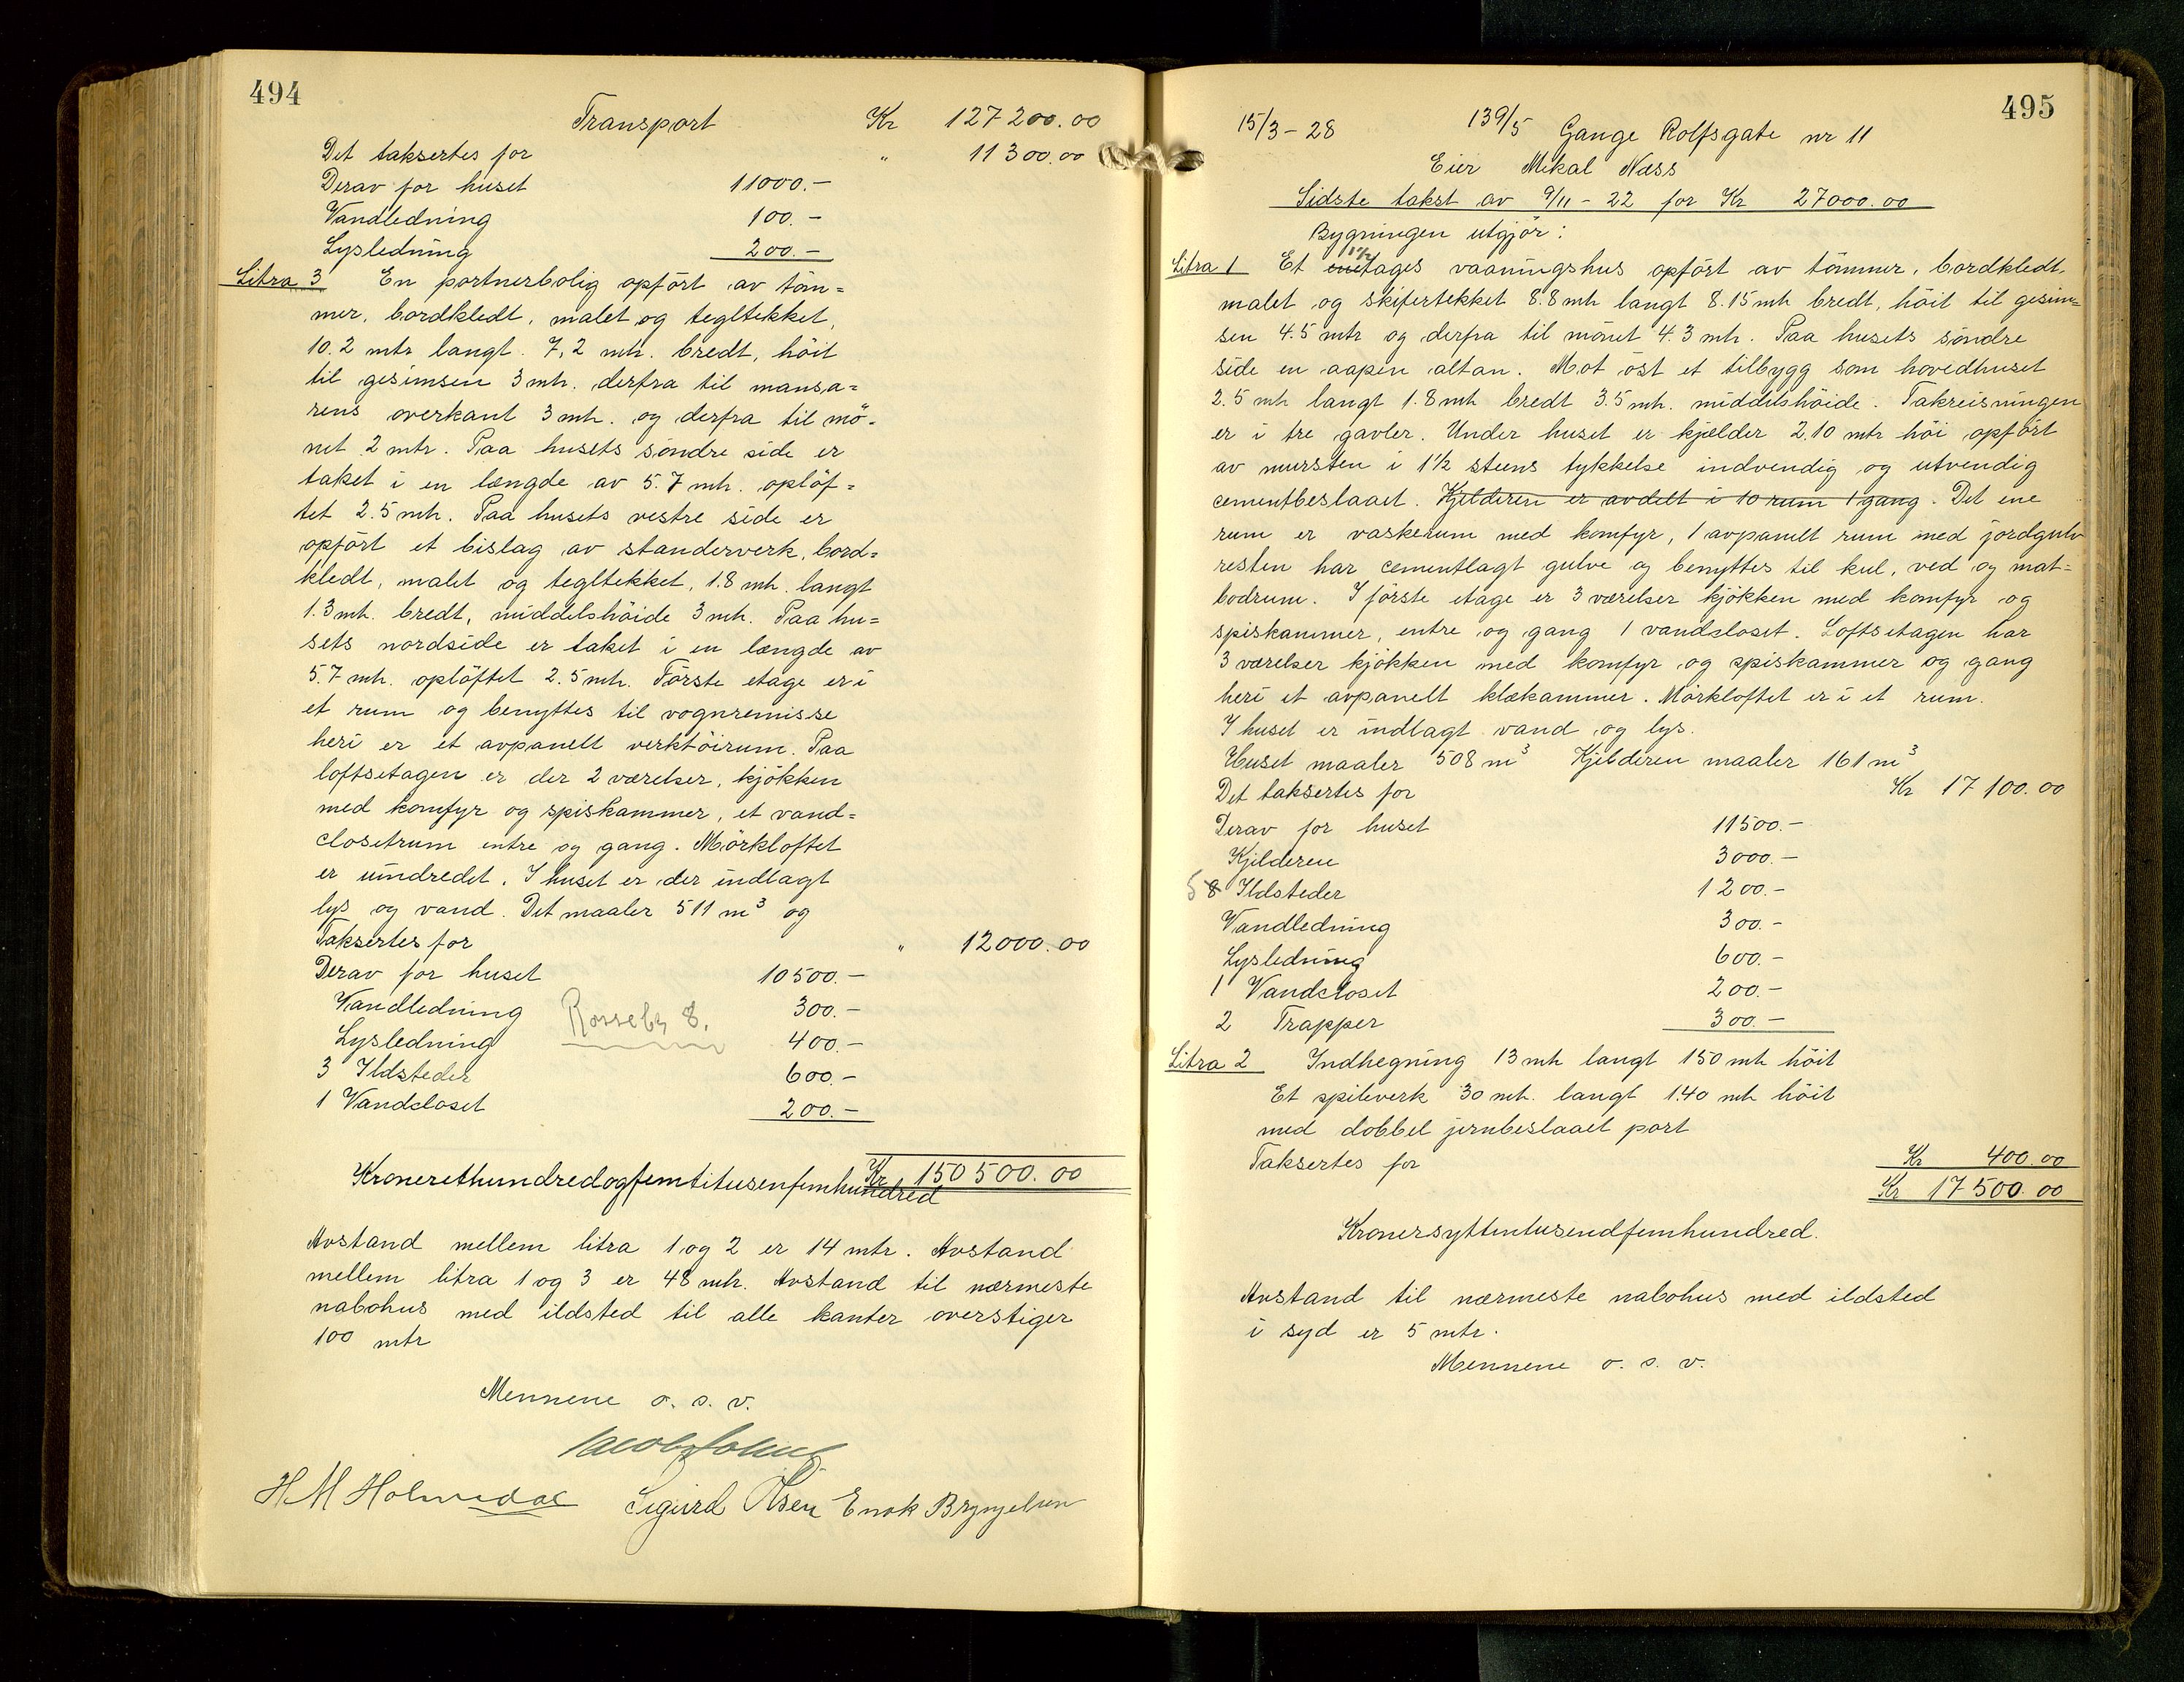 494
Transport Kr 127200.00
Det taksertes for " 11300.00
Derav for huset 11000.-
Vandledning 100.-
Lysledning 200.-
Litra 3 En portnerbolig opført av tøm=
mer, bordkledt, malet og tegltekket,
10.2 mtr langt. 7,2 mtr. bredt, høit
til gesimsen 3 mtr. derfra til mansa=
rens overkant 3 mtr. og derfra til mö=
net 2 mtr. Paa husets søndre side er
taket i en længde av 5.7 mtr. opløf=
tet 2.5 mtr. Paa husets vestre side er
opført et bislag av standerverk, bord=
kledt, malet og tegltekket, 1.8 mtr. langt
1.3 mtr. bredt, middelshøide 3 mtr. Paa hu=
sets nordside er taket i en længde av
5.7 mtr. opløftet 2.5 mtr. Første etage er i
et rum og benyttes til vognremisse
heri er et avpanelt verktøirum. Paa
loftsetagen er der 2 værelser, kjøkken
med komfyr og spiskammer, et vand=
closetrum entre og gang. Mørkloftet
er uindredet. I huset er der indlagt
lys og vand. Det maaler 511 m³ og
Taksertes for " 12000.00
Derav for huset 10500.-
Vandledning 300.-
Lysledning 400.-
3 Ildsteder 600.-
1 Vandcloset 200.-
Kr 150500.00
Kronerethundredogfemtitusenfemhundred
Avstand mellem litra 1 og 2 er 14 mtr. Avstand
mellem litra 1 og 3 er 48 mtr. Avstand til nærmeste
nabohus med ildsted til alle kanter overstiger
100 mtr
Mennene o. s. v.
H M Holmedal Sigurd Olsen Enok Brynjelsen
495
15/3-28 139/5 Gange Rolfsgate nr 11
Eier Mikal Næss
Sidste takst av 9/11-22 for Kr 27000.00
Bygningen utgjør:
Litra 1 Et 1½ enetages vaaningshus opført av tømmer, bordkledt,
malet og skifertekket 8.8 mtr langt 8.15 mtr bredt, høit til gesim=
sen 4.5 mtr og derfra til mønet 4.3 mtr. Paa husets søndre
side en aapen altan. Mot øst et tilbygg som hovedhuset
2.5 mtr langt 1.8 mtr bredt 3.5 mtr. middelshøide. Takreisningen
er i tre gavler. Under huset er kjælder 2.10 mtr høi opført
av mursten i 1½ steens tykkelse indvendig og utvendig
cementbeslaaet. Kjelderen er avdelt i 10 rum 1 gang. Det ene
rum er vaskerum med komfyr, 1 avpanelt rum med jordgulv
resten har cementlagt gulve og benyttes til kul, ved og mat=
bodrum. I første etage er 3 værelser kjøkken med komfyr og
spiskammer, entre og gang 1 vandcloset. Loftsetagen har
3 værelser kjøkken med komfyr og spiskammer og gang
heri et avpanelt klækammer. Mørkloftet er i et rum.
I huset er indlagt vand og lys.
Huset maaler 508 m³ Kjelderen maaler 161 m³
Det taksertes for Kr 17100.00
Derav for huset 11500.-
Kjelderen 3000.-
5 8 Ildsteder 1200.-
Vandledning 300.-
Lysledning 600.-
1 Vandcloset 200.-
2 Trapper 300.-
Litra 2 Indhegning 13 mtr langt 150 mtr høit
Et spileverk 30 mtr. langt 1.40 mtr høit
med dobbel jernbeslaaet port
Taksertes for Kr 400.00
Kr 17500.00
Kronersyttentusendfemhundred.
Avstand til nærmeste nabohus med ildsted
i syd er 5 mtr.
Mennene o. s. v.